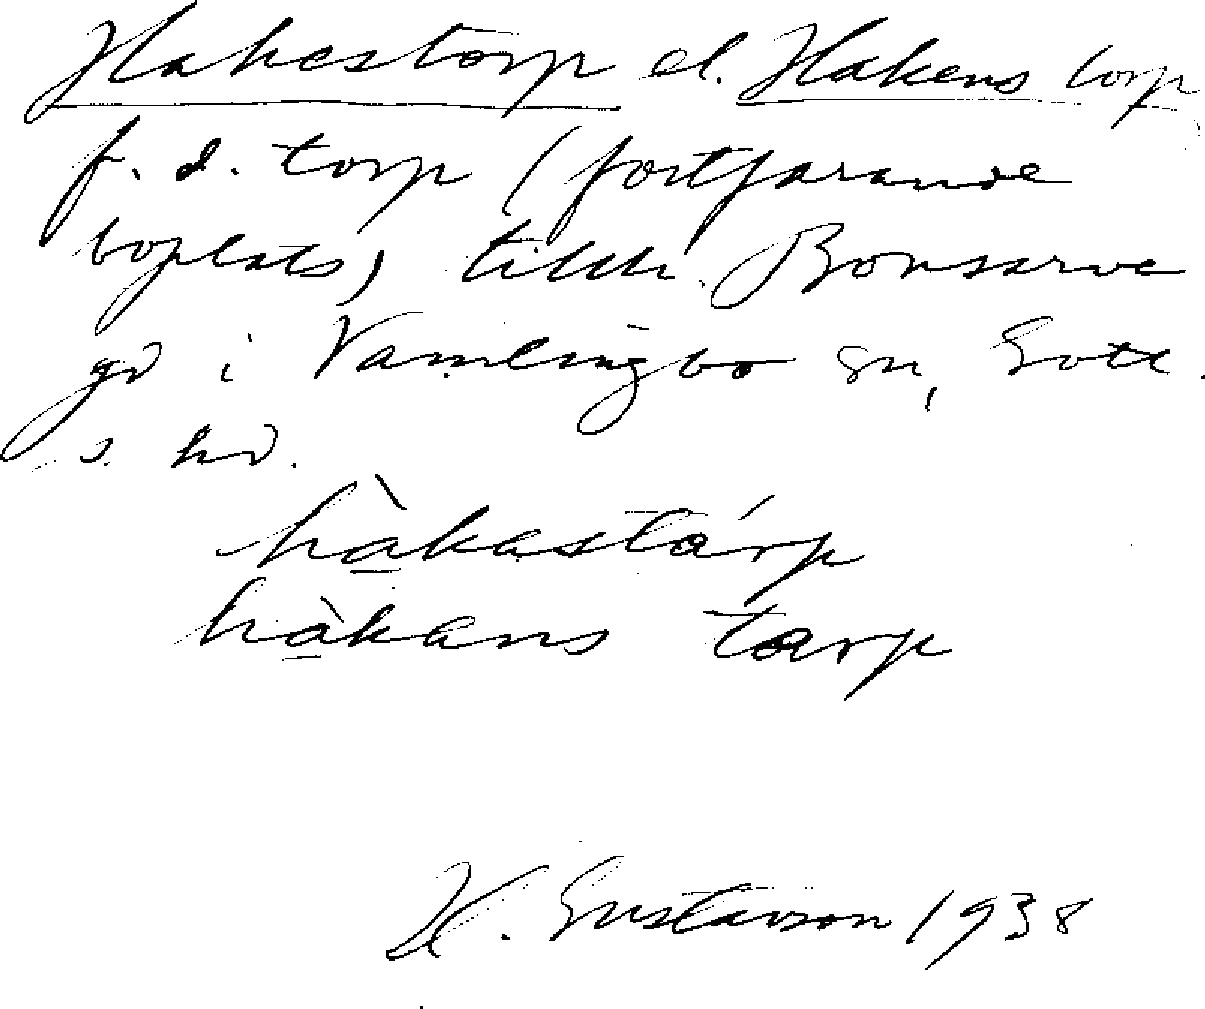 Hakestorp el. Hakens torp
f. d. torp (fortfarande
boplats) tillh. Bonsarve
gd i Vamlingbo sn, Gotl.
s. hd.
hàkastárp
hàkans tarp
H. Gustavson 1938